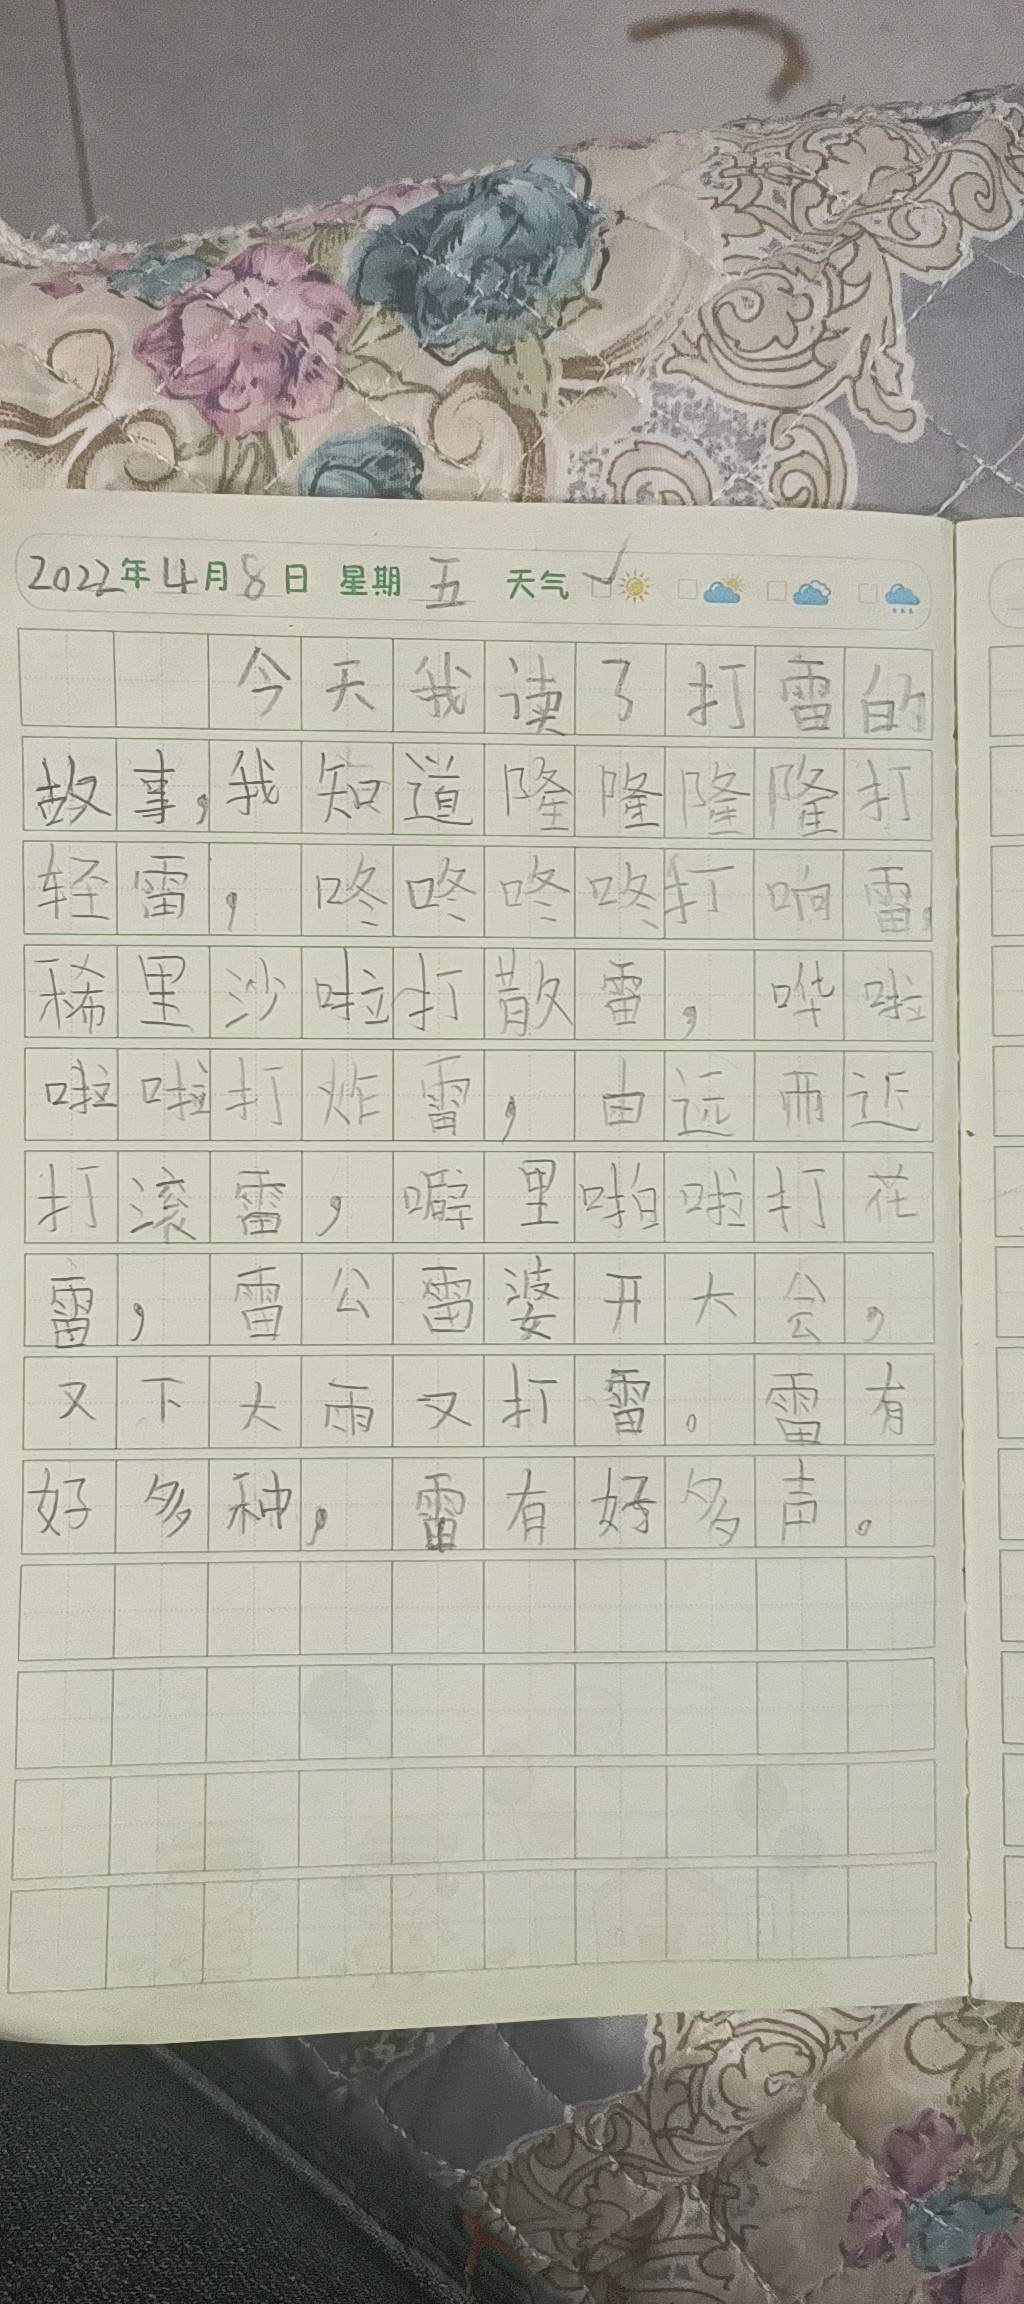 2022年4月8日 星期五 天气
今天我读了打雷的
故事,我知道隆隆隆隆打
轻雷,咚咚咚咚打响雷,
稀里沙啦打散雷,哗啦
啦啦打炸雷,由远而近
打滚雷,噼里啪啦打花
雷,雷公雷婆开大会,
又下大雨又打雷。雷有
好多种,雷有好多声。